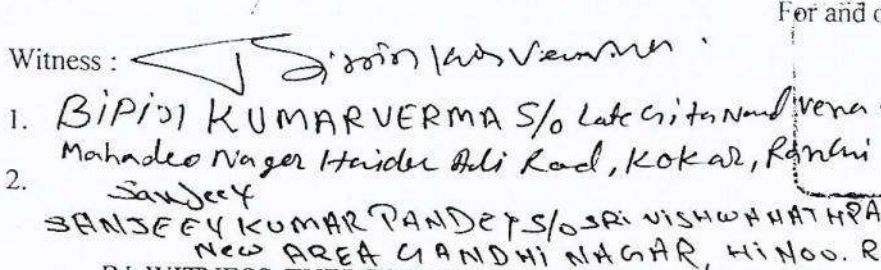 For and o
Witness : Bipin Kr Verma.
1. BIPIN KUMAR VERMA S/o Late Gita Nand Verma
Mahadeo Nagar Haider Ali Road, KOKAR, Ranchi
2. Sanjeev
SANJEEV KUMAR PANDEY S/O SRI VISHWANATH PA
New AREA GANDHI NAGAR, HINOO. R